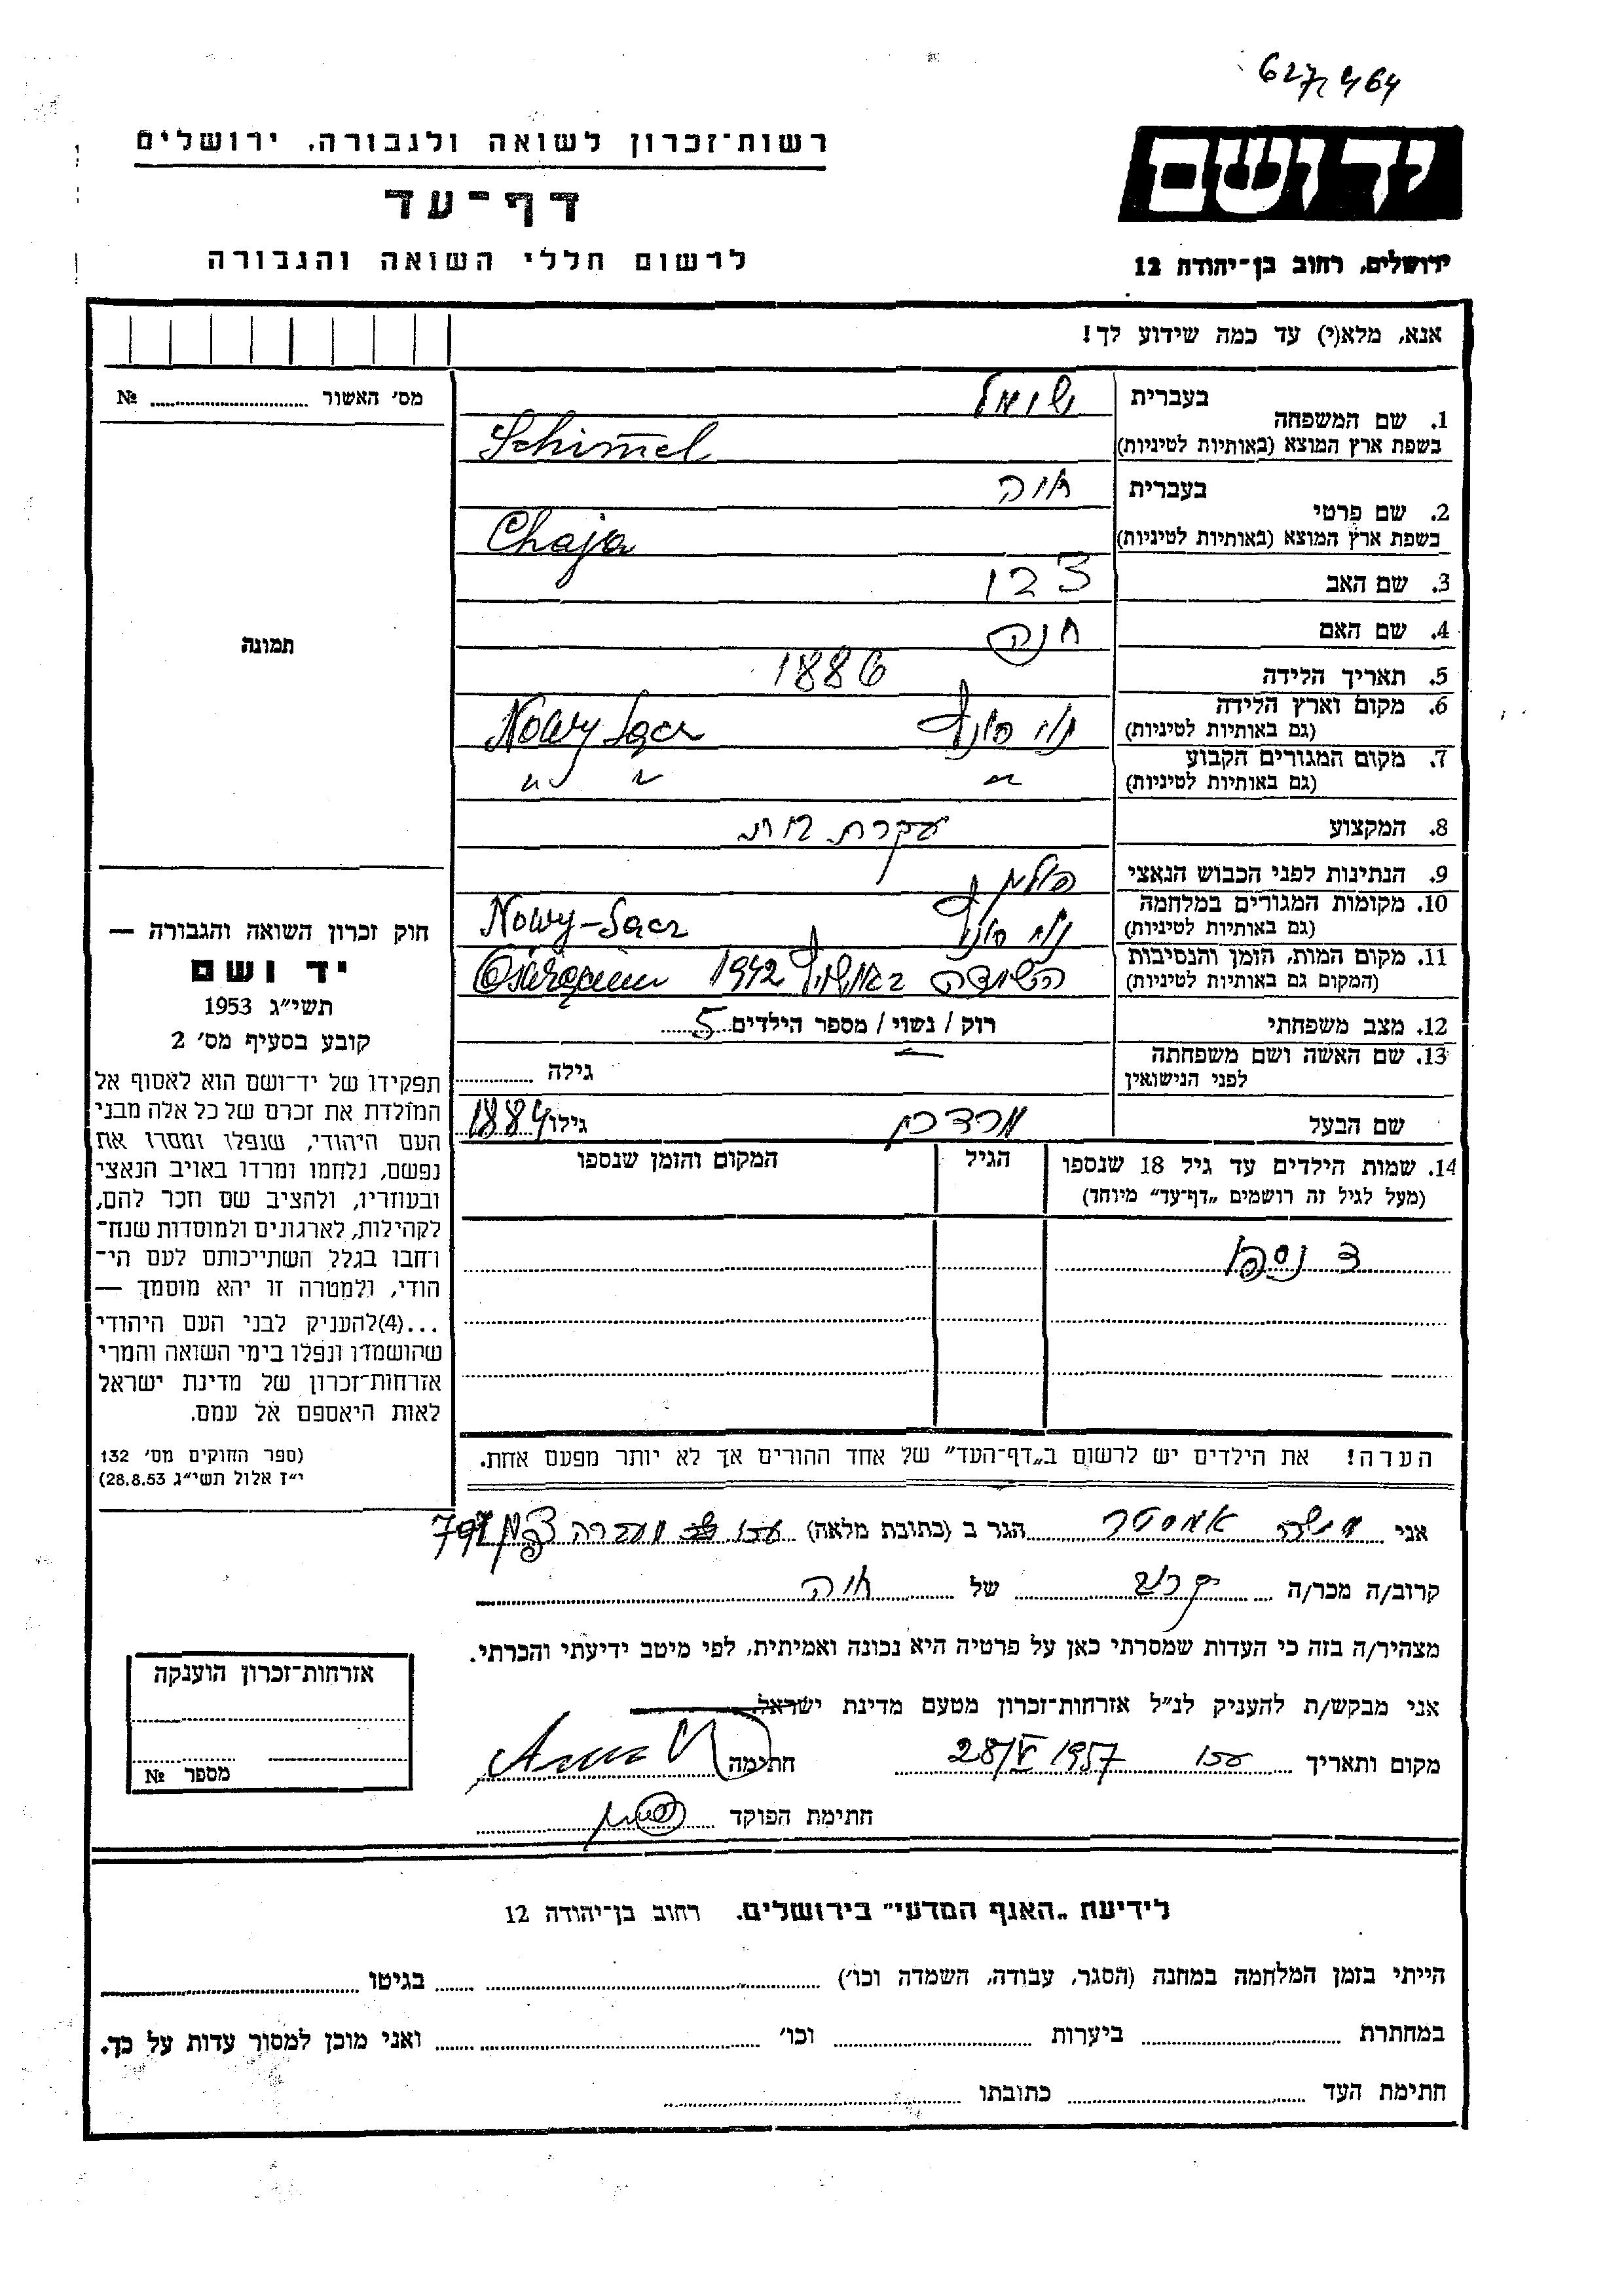 627/464
רשות־זכרון לשואה ולגבורה, ירושלים
יד ושם
דף־עד
ירושלים, רחוב בן־יהודה 12
לרשום חללי השואה והגבורה
אנא, מלא(י) עד כמה שידוע לך!
מס׳ האשור ........ №
בעברית
1. שם המשפחה
Schimel
בשפת ארץ המוצא (באותיות לטיניות)
בעברית חיה
2. שם פרטי
Chaja
בשפת ארץ המוצא (באותיות לטיניות)
3. שם האב
4. שם האם חנה
תמונה
5. תאריך הלידה 1886
6. מקום וארץ הלידה
(גם באותיות לטיניות) Nowy Sącz
7. מקום המגורים הקבוע
(גם באותיות לטיניות) " " "
8. המקצוע עקרת בית
9. הנתינות לפני הכבוש הנאצי
10. מקומות המגורים במלחמה
(גם באותיות לטיניות) Nowy-Sącz
11. מקום המות, הזמן והנסיבות
(המקום גם באותיות לטיניות) 1942
12. מצב משפחתי רוק / נשוי / מספר הילדים 5
13. שם האשה ושם משפחתה
לפני הנישואין גילה
שם הבעל מרדכי גילו 1884
14. שמות הילדים עד גיל 18 שנספו
(מעל לגיל זה רושמים „דף־עד״ מיוחד)
הגיל
המקום והזמן שנספו
נספו
הערה! את הילדים יש לרשום ב„דף־העד״ של אחד ההורים אך לא יותר מפעם אחת.
חוק זכרון השואה והגבורה —
יד ושם
תשי״ג 1953
קובע בסעיף מס׳ 2
תפקידו של יד־ושם הוא לאסוף אל
המולדת את זכרם של כל אלה מבני
העם היהודי, שנפלו ומסרו את
נפשם, נלחמו ומרדו באויב הנאצי
ובעוזריו, ולהציב שם וזכר להם,
לקהילות, לארגונים ולמוסדות שנח־
רחבו בגלל השתייכותם לעם הי־
הודי, ולמטרה זו יהא מוסמך —
...(4)להעניק לבני העם היהודי
שהושמדו ונפלו בימי השואה והמרי
אזרחות־זכרון של מדינת ישראל
לאות היאספם אל עמם.
(ספר החוקים מס׳ 132
י״ז אלול תשי״ג 28.8.53)
אני משה הגר ב (כתובת מלאה) עכו
קרוב/ה מכר/ה של חיה
מצהיר/ה בזה כי העדות שמסרתי כאן על פרטיה היא נכונה ואמיתית, לפי מיטב ידיעתי והכרתי.
אני מבקש/ת להעניק לנ״ל אזרחות־זכרון מטעם מדינת ישראל.
מקום ותאריך עכו 28/V 1957 חתימה
חתימת הפוקד
אזרחות־זכרון הוענקה
מספר №
לידיעת „האגף המדעי״ בירושלים, רחוב בן־יהודה 12
הייתי בזמן המלחמה במחנה (הסגר, עבודה, השמדה וכו׳) ........ בגיטו ........
במחתרת ........ ביערות ........ וכו׳ ........ ואני מוכן למסור עדות על כך.
חתימת העד ........ כתובתו ........